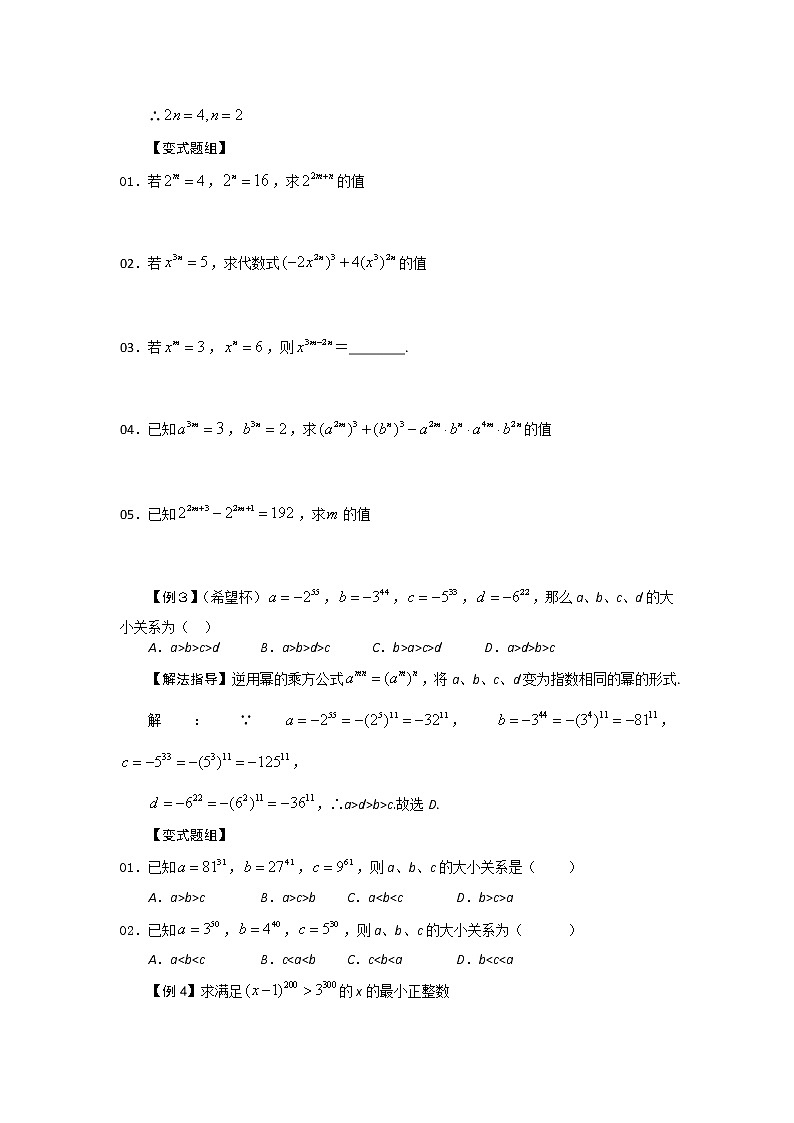 ∴2n = 4, n = 2
【变式题组】
01．若2^m = 4，2^n = 16，求2^{2m+n}的值
02．若x^{3n} = 5，求代数式(−2x^{2n})^3 + 4(x^3)^{2n}的值
03．若x^m = 3，x^n = 6，则x^{3m−2n}＝________.
04．已知a^{3m} = 3，b^{3n} = 2，求(a^{2m})^3 + (b^n)^3 − a^{2m}·b^n·a^{4m}·b^{2n}的值
05．已知2^{2m+3} − 2^{2m+1} = 192，求m的值
【例３】（希望杯）a = −2^{55}，b = −3^{44}，c = −5^{33}，d = −6^{22}，那么a、b、c、d的大
小关系为（ ）
A．a>b>c>d B．a>b>d>c C．b>a>c>d D．a>d>b>c
【解法指导】逆用幂的乘方公式a^{mn} = (a^m)^n，将a、b、c、d变为指数相同的幂的形式.
解：∵a = −2^{55} = −(2^5)^{11} = −32^{11}，b = −3^{44} = −(3^4)^{11} = −81^{11}，
c = −5^{33} = −(5^3)^{11} = −125^{11}，
d = −6^{22} = −(6^2)^{11} = −36^{11}，∴a>d>b>c.故选D.
【变式题组】
01．已知a = 81^{31}，b = 27^{41}，c = 9^{61}，则a、b、c的大小关系是（ ）
A．a>b>c B．a>c>b C．a<b<c D．b>c>a
02．已知a = 3^{50}，b = 4^{40}，c = 5^{30}，则a、b、c的大小关系为（ ）
A．a<b<c B．c<a<b C．c<b<a D．b<c<a
【例4】求满足(x−1)^{200} > 3^{300}的x的最小正整数